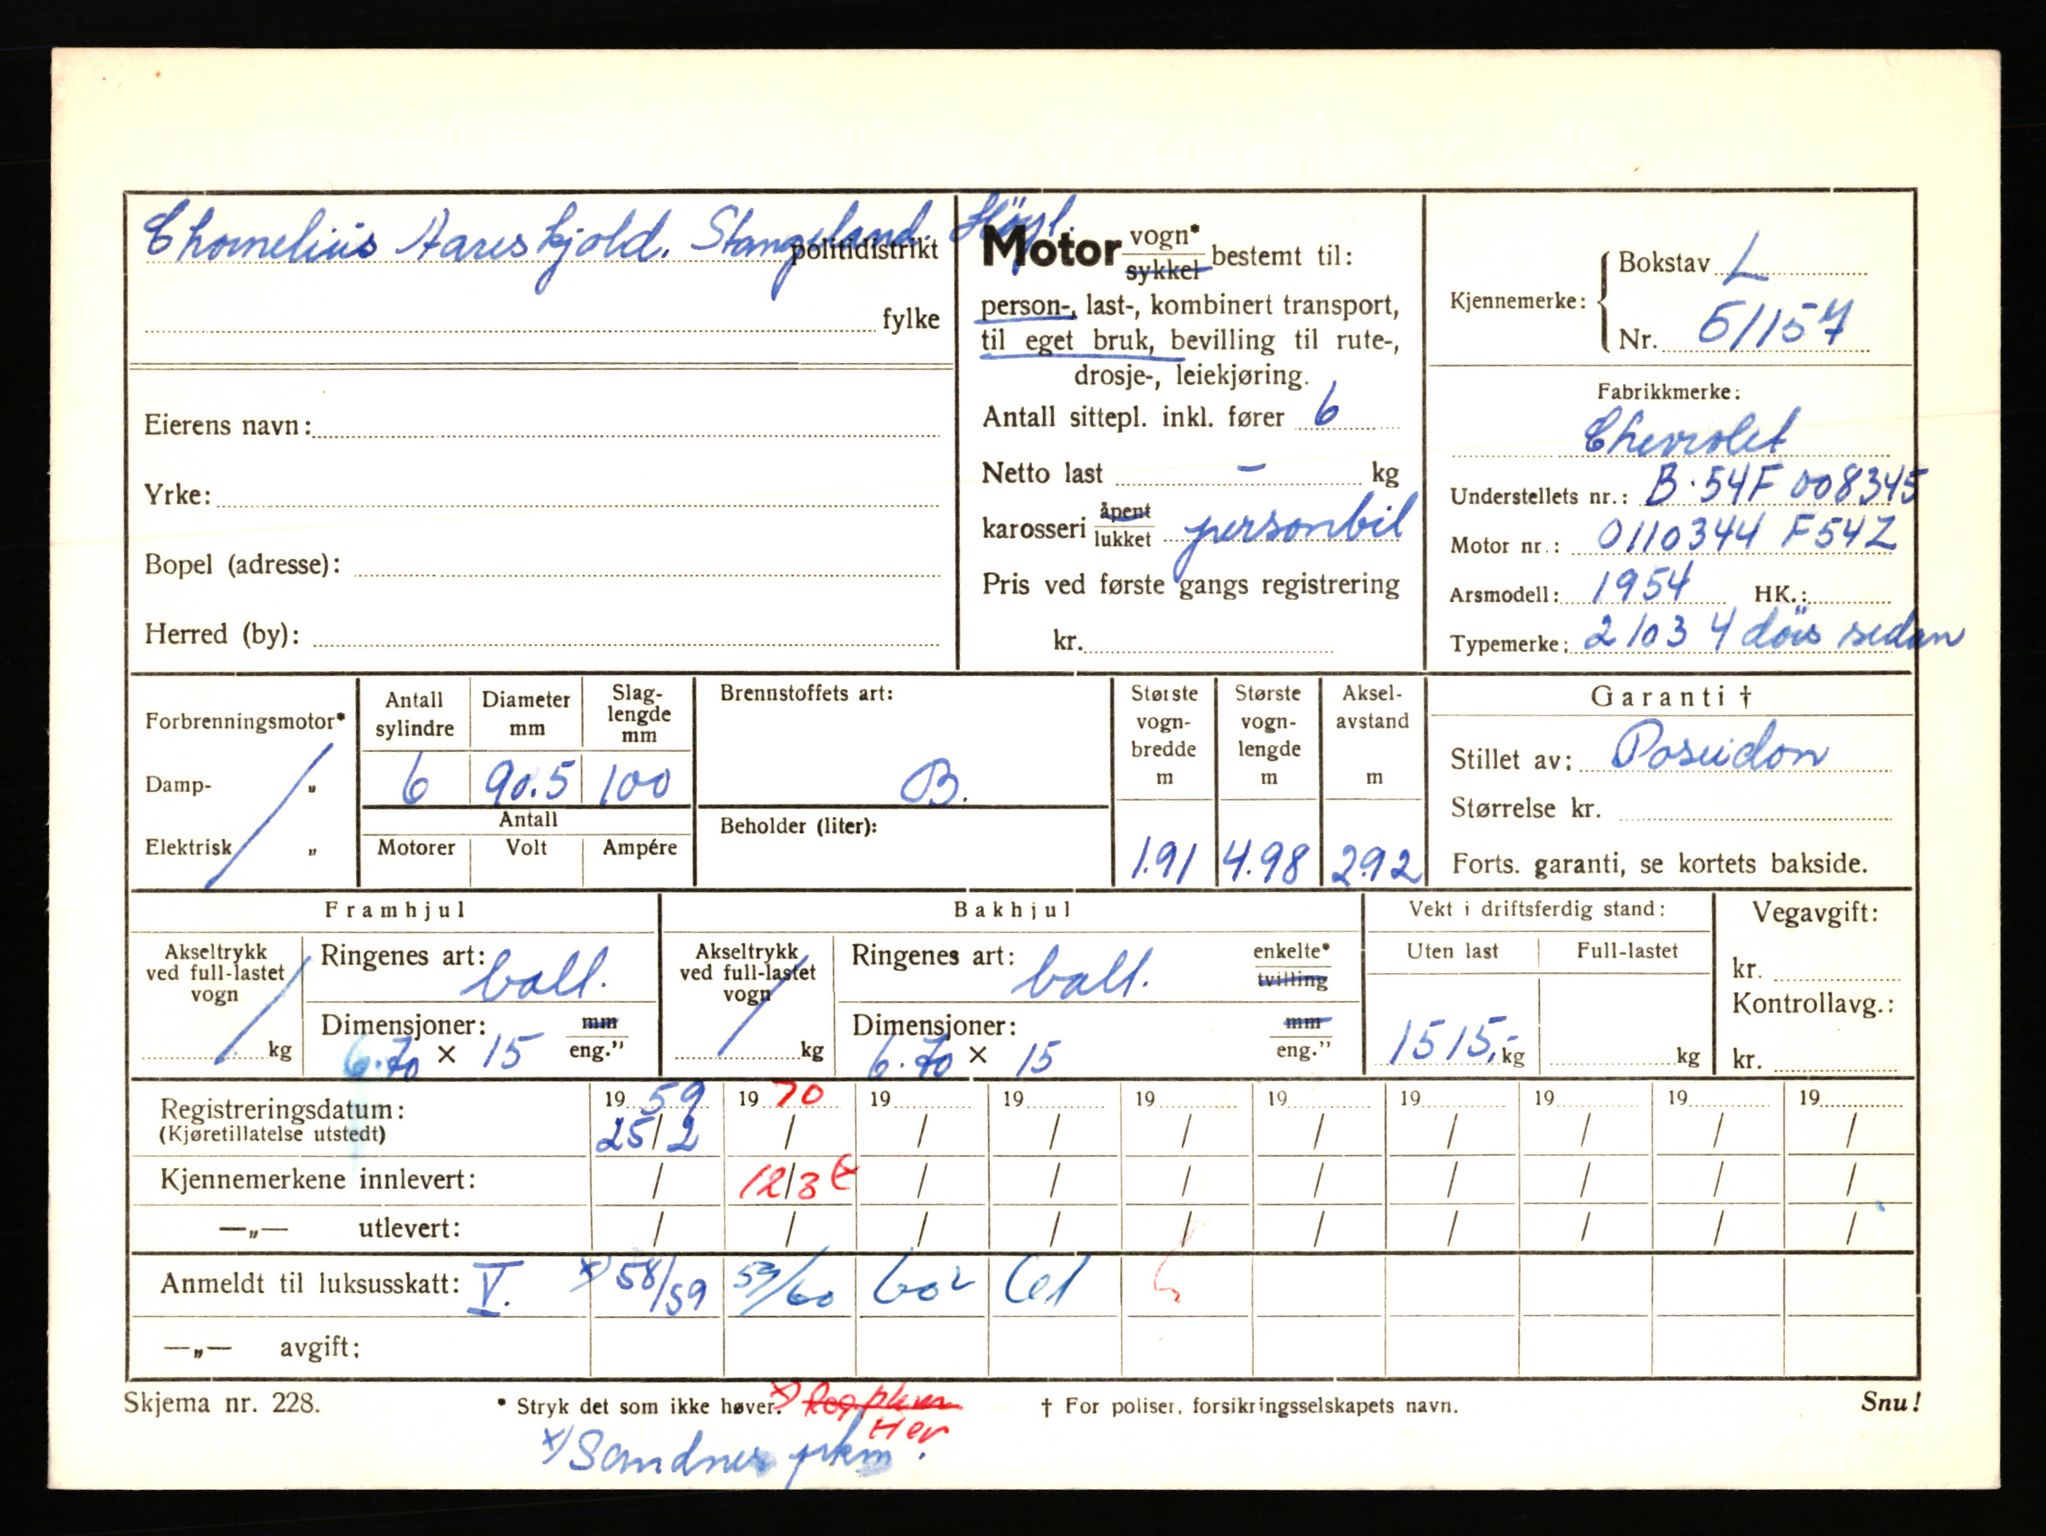 Chornelius Aareskjold. Stangeland politidistrikt
fylke
Eierens navn:
Yrke:
Bopel (adresse):
Herred (by):
Motor vogn* sykkel bestemt til:
person-, last-, kombinert transport,
til eget bruk, bevilling til rute-,
drosje-, leiekjøring.
Antall sittepl. inkl. fører 6
Netto last – kg
karosseri åpent lukket personbil
Pris ved første gangs registrering
kr.
Kjennemerke: Bokstav L
Nr. 51157
Fabrikkmerke:
Chevrolet
Understellets nr.: B.54F 008345
Motor nr.: 0110344 F54Z
Arsmodell: 1954 HK.:
Typemerke: 2103 4 dörs sedan
Forbrenningsmotor*
Damp- "
Elektrisk "
Antall sylindre Diameter mm Slag-lengde mm
6 90.5 100
Antall
Motorer Volt Ampére
Brennstoffets art:
B.
Beholder (liter):
Største vogn-bredde m Største vogn-lengde m Aksel-avstand m
1.91 4.98 292
Garanti †
Stillet av: Poseidon
Størrelse kr.
Forts. garanti, se kortets bakside.
Framhjul
Akseltrykk ved full-lastet vogn kg
Ringenes art: ball.
Dimensjoner: mm
6.70 × 15 eng."
Bakhjul
Akseltrykk ved full-lastet vogn kg
Ringenes art: ball. enkelte* tvilling
Dimensjoner: mm
6.70 × 15 eng."
Vekt i driftsferdig stand:
Uten last Full-lastet
1515,- kg kg
Vegavgift:
kr.
Kontrollavg.:
kr.
Registreringsdatum: 19 59 19 70 19 19 19 19 19 19 19 19
(Kjøretillatelse utstedt) 25/2 / / / / / / / / /
Kjennemerkene innlevert: / 12/3 / / / / / / / /
—„— utlevert: / / / / / / / / / /
Anmeldt til luksusskatt: V. x) 58/59 59/60 60² 61
—„— avgift:
Skjema nr. 228. * Stryk det som ikke høver. x) † For poliser, forsikringsselskapets navn. Snu!
Her
x) Sandnes pkm.